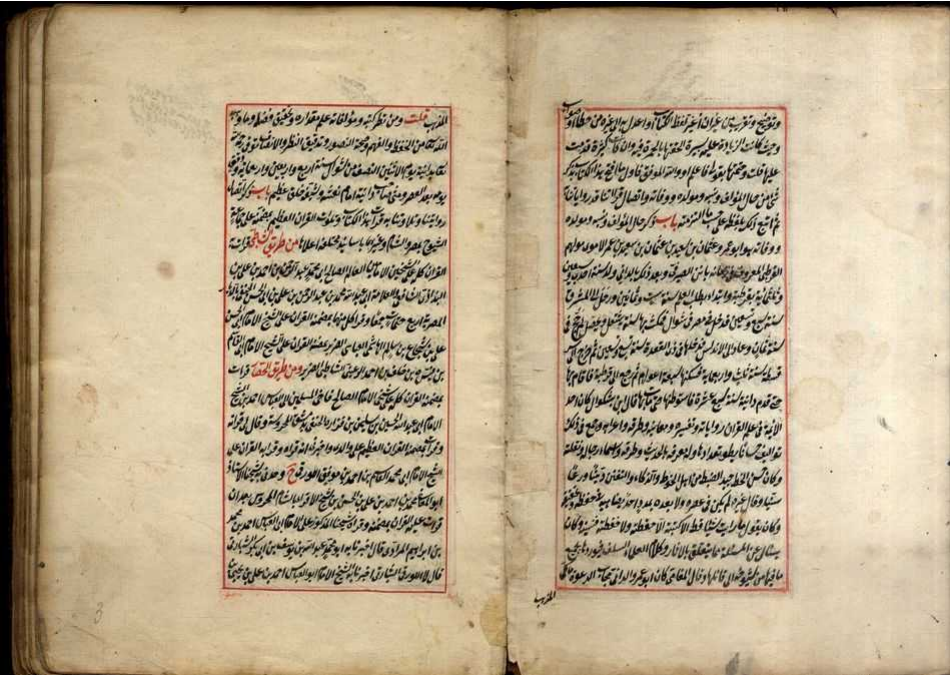 وتوضيح وتقريب من غير ان اغير لفظ الكتاب او اعدل به الى غيره من خطا او صواب
وحيث كانت الزيادة عليه يسيرة الحقتها بالحمرة فيه وان كانت كثيرة قدمت
عليها قلت وختمتها بلفظة فاعلم والله الموفق فاول ما افتتح به هذا الكتاب ذكر
شئ من حال المؤلف ونسبه ومولده ووفاته واتصال قراءتنا به وروايتنا
ثم اتبع ذلك بلفظه على حسب ما التزمته باب ذكر حال المؤلف ونسبه ومولده
ووفاته هو ابو عمرو عثمان بن سعيد بن عثمان بن سعيد بن عمر الاموى مولاهم
القرطبى المعروف فى زمانه بابن الصيرفى وبعد ذلك بالدانى ولد سنة احدى وسبعين
وثلثمائة بقرطبة وابتدا بطلب العلم سنة ست وثمانين ورحل الى المشرق
سنة سبع وتسعين فدخل مصر فى شوال فمكث بها سنة يشتغل ثم حج فى
سنة ثمان وعاد الى الاندلس فدخلها فى ذى القعدة سنة تسع وتسعين ثم خرج الى
سنة ثلث واربعمائة فسكنها سبعة اعوام ثم رجع الى قرطبة فاقام بها
قدم دانية سنة سبع عشرة فاستوطنها حتى مات بها قال ابن بشكوال كان احد
الائمة فى علم القران رواياته وتفسيره ومعانيه وطرقه واعرابه وجمع فى ذلك
تواليف حسانا يطول تعدادها وله معرفة بالحديث وطرقه واسماء رجاله ونقلته
وكان حسن الخط جيد الضبط من اهل الحفظ والذكاء والتفنن دينا ورعا
سنيا وقال غيره لم يكن فى عصره ولا بعده بمدد احد يضاهيه فى حفظه وتحقيقه
وكان يقول ما رايت شيئا قط الا كتبته الا حفظته ولا حفظته فنسيته وكان
يسال عن المسئلة مما يتعلق بالاثار وكلام العلماء السلف فيوردها بجميع
ما فيها الى قائلها وقال المغامى كان ابو عمرو الدانى مجاب الدعوة مالكى
المذهب
المذهب قلت ومن نظر كتبه ومؤلفاته علم مقداره وتحقق فضله وما وهبه
الله تعالى من الحفظ والفهم وصحة التصور وتدقيق النظر والاتقان توفى رحمه
بدانية يوم الاثنين النصف من شوال سنة اربع واربعين واربعمائة ودفن
يومه بعد العصر ومشى صاحب دانية امام نعشه وشيعه خلق عظيم باب ذكر اتصال
روايتنا وتلاوتنا به قرات بهذا الكتاب وتلوت القران العظيم بمضمنه على جماعة
الشيوخ بمصر والشام وغيرها باسانيد مختلفة اعلاها من طريق الشاطبى قراءته
القران كله على الشيخين الامامين العالم الصالح ابى محمد عبد الرحمن بن احمد بن على بن
البغدادى الشافعى والعلامة ابى عبد الله محمد بن عبد الرحمن بن على بن ابى الحسن الحنفى
المصرية اربع ختمات جمعا وقرا كل منهما بمضمنه القران على الشيخ الامام ابى الحسن
على بن شجاع بن سالم الهاشمى العباسى الضرير بمضمنه القران على الشيخ الامام ابى القاسم
بن فيره بن خلف بن احمد الرعينى الشاطبى الضرير ومن طريق قرات
بمضمنه القران كله على الشيخ الامام الصالح قاضى المسلمين ابى العباس احمد بن الشيخ
الامام ابى عبد الله الحسين بن سليمن بن فزارة الحنفى بدمشق المحروسة وقال لى قراته
وقرات بمضمنه القران العظيم على والدى واخبرنى انه قراه وقرا به القران على
الشيخ الامام ابى محمد القاسم بن احمد بن موفق اللورقى ح وحدثنى به شيخنا الاستاذ
ابو المعالى محمد بن احمد بن على بن الحسن بن الشيخ الاقراء بالشام المحروس بعد ان
قرات عليه القران بمضمنه وقراه شيخنا المذكور على الامام ابى العباس احمد بن محمد
بن ابراهيم المرادى قال اخبرنا به ابو محمد عبد الله بن يوسف بن ابى بكر الشبارتى
قال اللورقى والشبارتى اخبرنا به الشيخ الامام ابو العباس احمد بن على بن يحيى